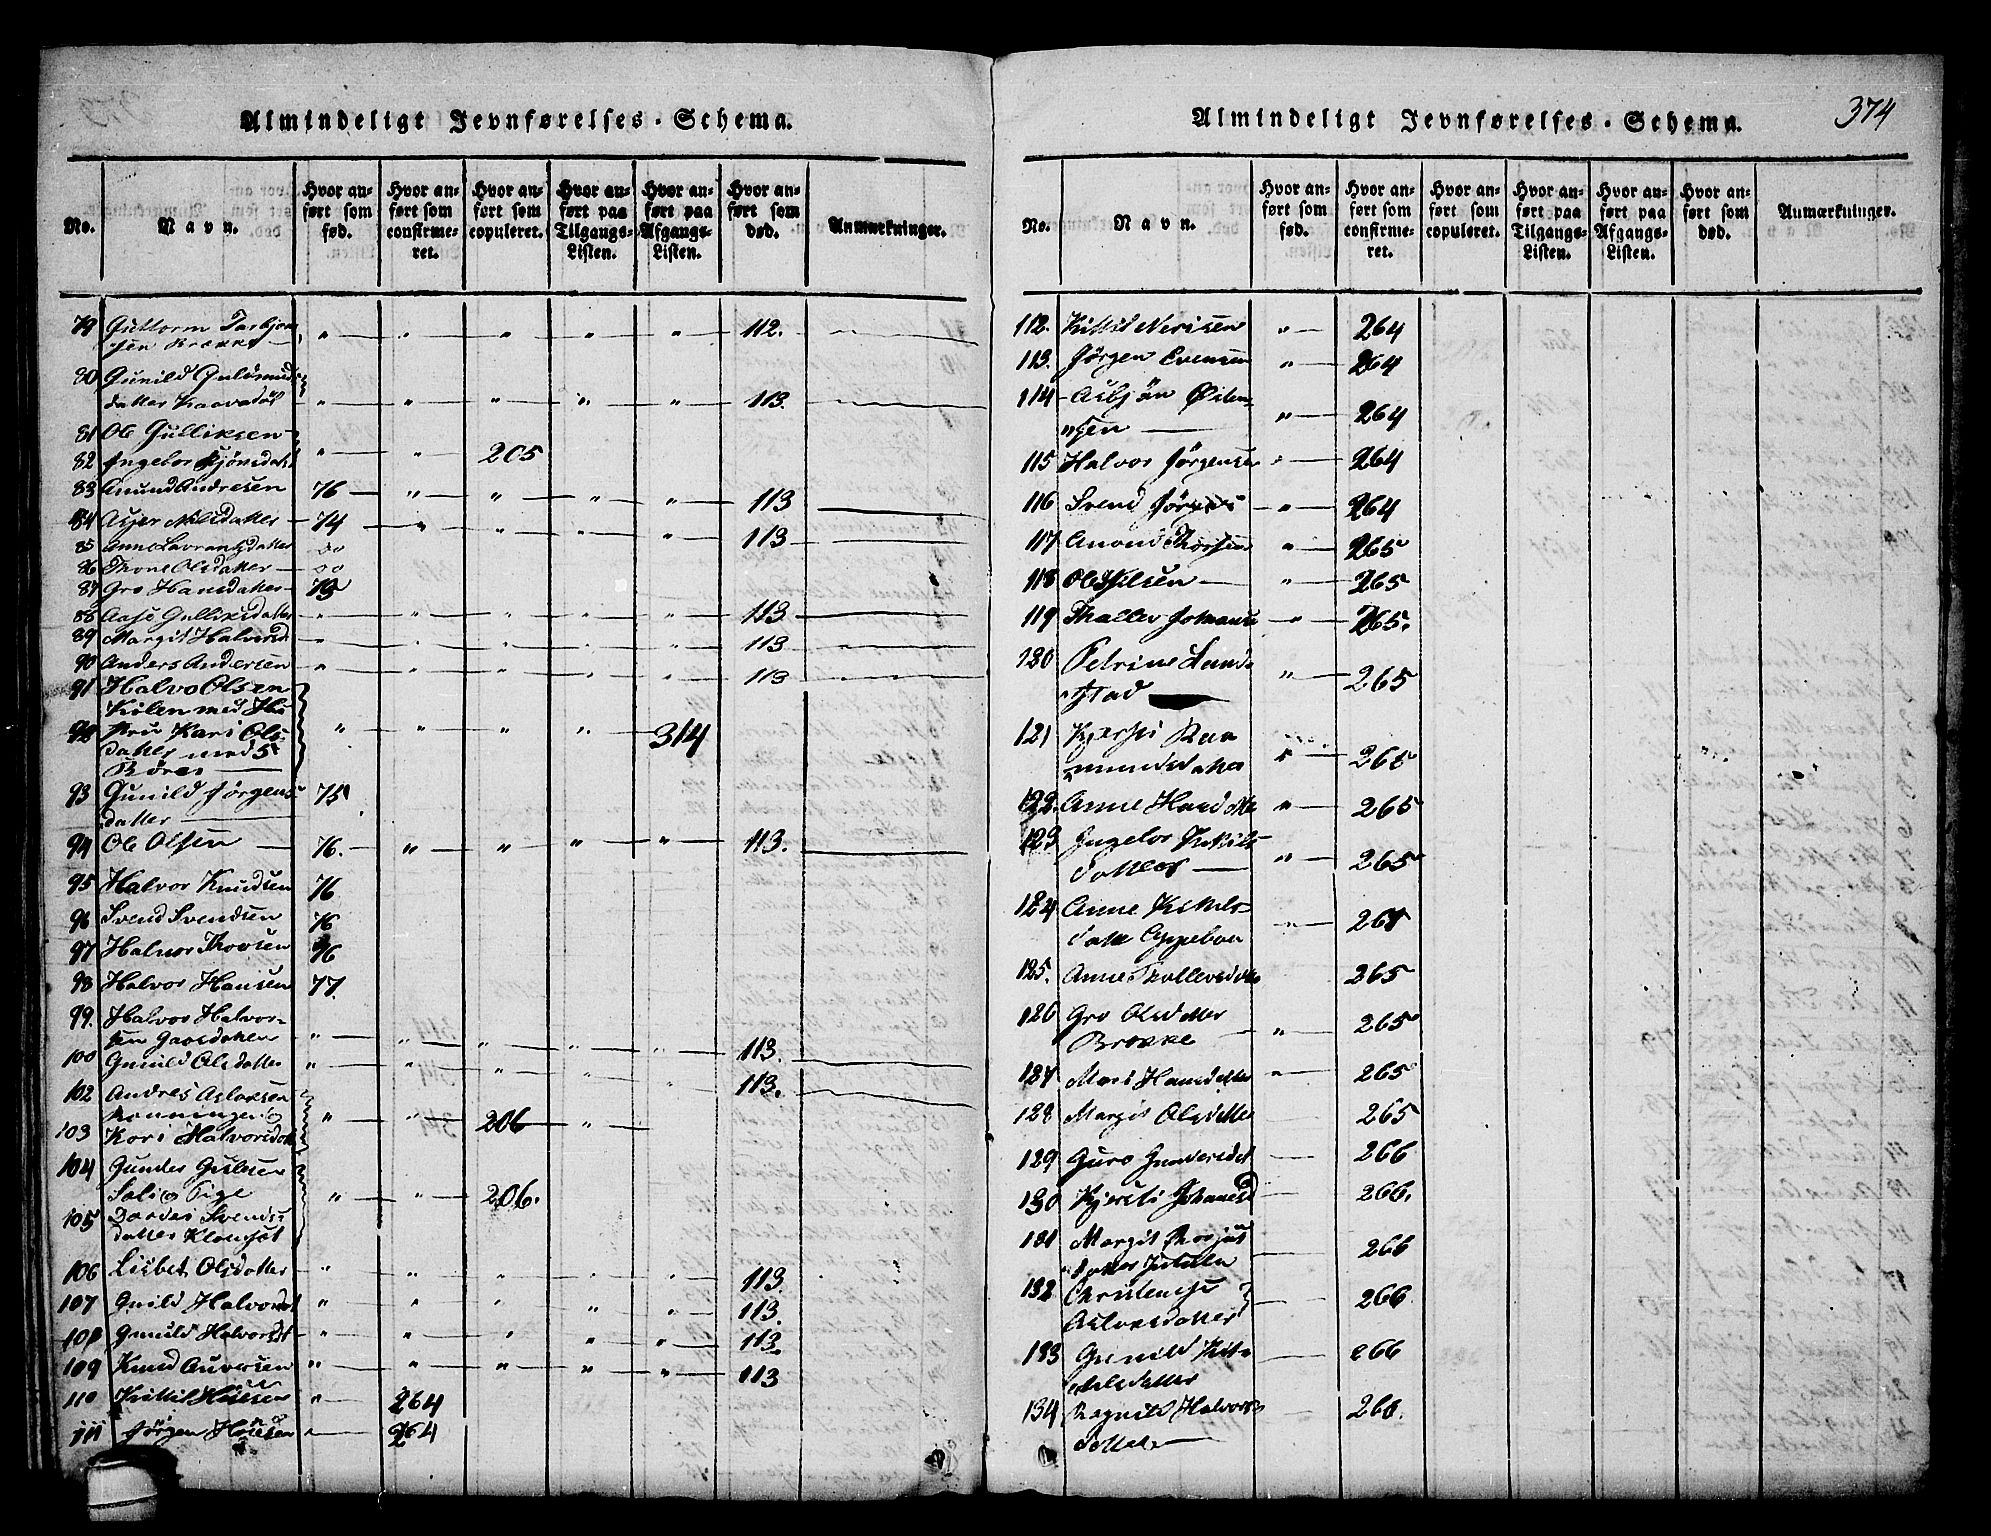 Almindeligt Jevnførelses-Schema.
No.
Navn.
Hvor anført som fød.
Hvor anført som confirmeret.
Hvor anført som copuleret.
Hvor anført paa Tilgangs-Listen.
Hvor anført paa Afgangs-Listen.
Hvor anført som død.
Anmærkninger.
79 Guttorm Torbjøn " " " " " 112.
sen Brække
80 Gunild Guldmunds
datter " " " " " 113.
81 Ole Gulliksen
82 Ingebor " " 205
83 Amund Andresen 76 " " " " 113
84 Nilsdatter 74 " " " " 113
85 Anne Lavrantsdatter do
86 Thone Olsdatter do
87 Gro Hansdatter 75
88 Aase Gulliksdatter " " " " " 113
89 Margit Halvorsd " " " " " 113
90 Anders Andersen " " " " " 113
91 Halvo Olsen
Kilen med Hu
92 stru Kari Ols " " " " 314
datter med 5
Børn
93 Gunild Jørgens 75
datter
94 Ole Olsen 76. " " " " 113.
95 Halvor Knudsen 76
96 Svend Svendsen 76
97 Halvor Thovsen 76
98 Halvor Hansen 77.
99. Halvor Halvor-
sen " " " " " 113.
100 Gunild Olsdatter " " " " " 113.
102 Andres Aslaksen
" " 206 "
103 Kari Halvorsdat
104 Gundes
Pige " " 206.
105 Svends
datter
106 Lisbet Olsdatter " " " " " 113.
107 Gunild Halvorsdat " " " " " 113.
108 Gunild Halvorsdat " " " " " 113.
109 Knud " " " " " 113
110 Kittil " 264
111 Jørgen " 264
Almindeligt Jevnførelses-Schema.
374
No.
Navn.
Hvor anført som fød.
Hvor anført som confirmeret.
Hvor anført som copuleret.
Hvor anført paa Tilgangs-Listen.
Hvor anført paa Afgangs-Listen.
Hvor anført som død.
Anmærkninger.
112. Kittil Nerisen " 264
113. Jørgen Evensen " 264
114 Asbjön Østen-
sen " 264
115 Halvor Jørgensen " 264
116 Svend Jørgens " 264
117 Anond " 265
118 Ole Nilsen " 265
119 Thallev Johannes " 265.
120 Petrine Lund-
stad " 265
121 Kjersti Raa
mundsdatter " 265
122. Anne " 265
123 Ingebor Kittils
datter " 265
124 Anne Kittils-
datt " 265
125. Anne Thallevsdatter 265
126 Gro Olsdatter
Brække " 265
127 Mari Hansdatter " 265
128 Margit Olsdatter 265
129 Guro Gunversdat 266
130 Kjersti Johannesd 266.
131 Margit
datter 266
132
Aslaksdatter 266
133 Gunild Kit-
telsdatter 266
134 Ragnild Halvors-
datter 266.